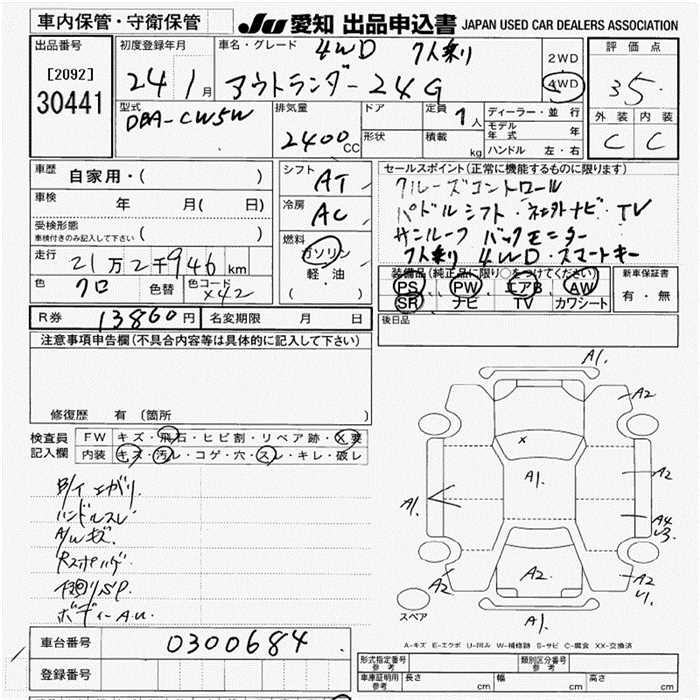 車内保管・守衛保管
JU 愛知 出品申込書 JAPAN USED CAR DEALERS ASSOCIATION
出品番号
[2092]
30441
初度登録年月
24 1月
車名・グレード 4WD 7人乗り
アウトランダー 24G
2WD
4WD
評価点
3.5
外装 内装
C C
型式
DBA-CW5W
排気量
2400cc
ドア
形状
定員 7人
積載 kg
ディーラー・並行
モデル年式 年
ハンドル 左・右
車歴
自家用・( )
車検 年 月( 日)
受検形態
車検付きのみ記入して下さい ( )
走行
21万2千946km
色 クロ 色替 色コード X42
シフト AT
冷房 AC
燃料
ガソリン
軽・油
( )
セールスポイント(正常に機能するものに限ります)
クルーズコントロール
パドルシフト・社外ナビ・TV
サンルーフ バックモニター
7人乗り 4WD・スマートキー
装備品(純正品に限り○をつけてください)
PS PW エアB AW
SR ナビ TV カワシート
新車保証書
有・無
後日品
R券 13860円 名変期限 月 日
注意事項申告欄(不具合内容等は具体的に記入して下さい)
修復歴 有(箇所 )
検査員記入欄
FW キズ・飛石・ヒビ割・リペア跡・X要
内装 キズ・汚レ・コゲ・穴・スレ・キレ・破レ
ハンドルスレ
A/Wキズ
下回りSP
ボディーAU
A1
A2
A1
A2
A1
A4
U3
A2
A2
A2
U1
A1
スペア
A-キズ E-エクボ U-凹み W-補修跡 S-サビ C-腐食 XX-交換済
車台番号 0300684
登録番号
形式指定番号 参考
類別区分番号 参考
車庫証明用 参考 長さ cm 幅 cm 高さ cm